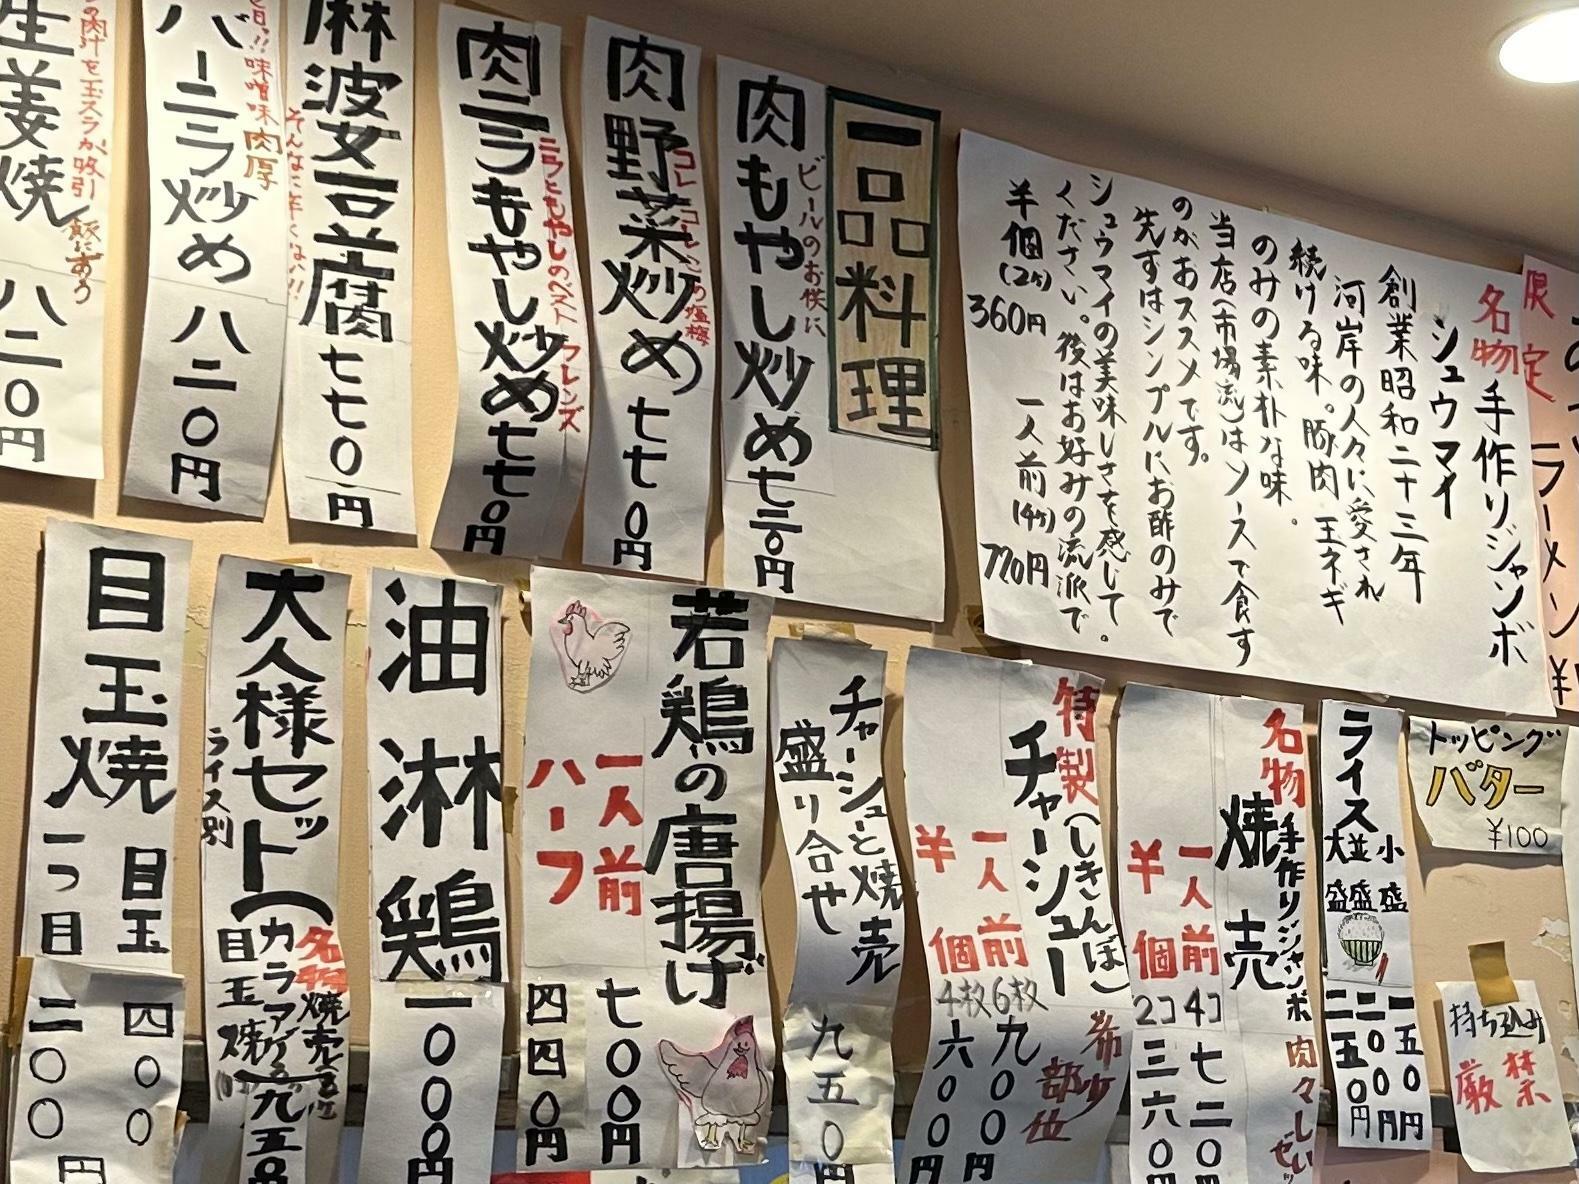 限定
ラーメン
名物 手作りジャンボ
シュウマイ
創業昭和二十三年
河岸の人々に愛され
続ける味。豚肉 玉ネギ
のみの素朴な味。
当店(市場流)はソースで食す
のがおススメです。
先ずはシンプルにお酢のみで
シュウマイの美味しさを感じて。
ください。後はお好みの流派で
半個(2ケ) 一人前(4ケ)
360円 720円
一品料理
ビールのお供に
肉もやし炒め 七三〇円
肉野菜炒め 七七〇円
ニラともやしのベストフレンズ
肉ニラもやし炒め 七七〇円
麻婆豆腐 七七〇円
そんなに辛くない!!
味噌味 肉厚
バーニラ炒め 八二〇円
生姜焼 八二〇円
トッピング
バター
¥100
持ち込み
厳禁
ライス
小盛 一五〇円
並盛 二〇〇円
大盛 二五〇円
名物 手作りジャンボ
焼売
一人前 4コ 七二〇円
半個 2コ 三六〇円
特製(しきんぼ)
チャーシュー
希少部位
一人前 6枚 九〇〇円
半個 4枚 六〇〇円
チャーシューと焼売
盛り合せ
九五〇円
若鶏の唐揚げ
一人前 七〇〇円
ハーフ 四四〇円
油淋鶏 一〇〇〇円
大人様セット
ライス別
名物焼売
カラアゲ
目玉焼
九五〇円
目玉焼
目玉 四〇〇
一つ目 二〇〇円